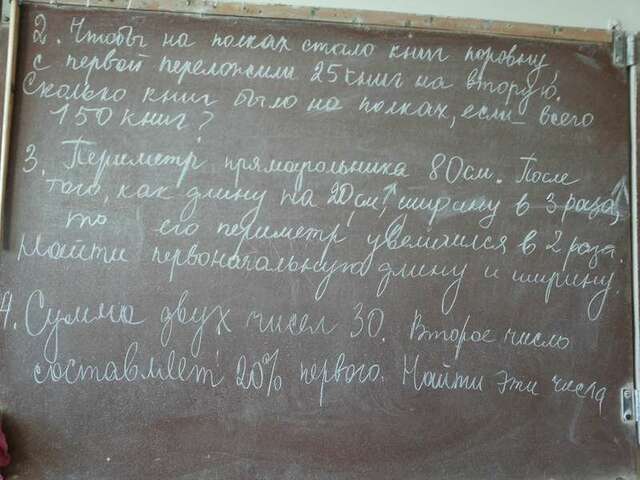 2. Чтобы на полках стало книг поровну,
с первой переложили 25 книг на вторую.
Сколько книг было на полках, если всего
150 книг?
3. Периметр прямоугольника 80см. После
того, как длину на 20см ↑, ширину в 3 раза ↑,
то его периметр увеличился в 2 раза.
Найти первоначальную длину и ширину.
4. Сумма двух чисел 30. Второе число
составляет 20% первого. Найти эти числа